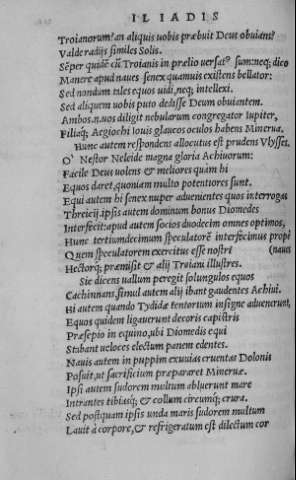 ILIADIS
Troianorum? an aliquis uobis præbuit Deus obuiens?
Valde radijs similes Solis.
Sẽper quidẽ cũ Troianis in prælio uersatꝰ sum: neq; dico
Manere apud naues senex quamuis existens bellator:
Sed nondum tales equos uidi, neq; intellexi.
Sed aliquem uobis puto dedisse Deum obuientem.
Ambos. n. uos diligit nebularum congregator Iupiter,
Filiaq; Aegiochi Iouis glaucos oculos habens Minerua.
Hunc autem respondens allocutus est prudens Vlysses.
O' Nestor Neleide magna gloria Achiuorum:
Facile Deus uolens & meliores quàm hi
Equos daret, quoniam multo potentiores sunt.
Equi autem hi senex nuper aduenientes quos interrogas
Threicij, ipsis autem dominum bonus Diomedes
Interfecit: apud autem socios duodecim omnes optimos,
Hunc tertiumdecimum speculatorẽ interfecimus propè
Quem speculatorem exercitus esse nostri (naues
Hectorq; præmisit & alij Troiani illustres.
Sic dicens uallum peregit solungulos equos
Cachinnans, simul autem alij ibant gaudentes Achiui.
Hi autem quando Tydidæ tentorium insigne aduenerunt,
Equos quidem ligauerunt decoris capistris
Præsepio in equino, ubi Diomedis equi
Stabant ueloces electum panem edentes.
Nauis autem in puppim exuuias cruentas Dolonis
Posuit, ut sacrificium præpararet Mineruæ.
Ipsi autem sudorem multum abluerunt mare
Intrantes tibiasq; & collum circumq; crura.
Sed postquam ipsis unda maris sudorem multum
Lauit à corpore, & refrigeratum est dilectum cor